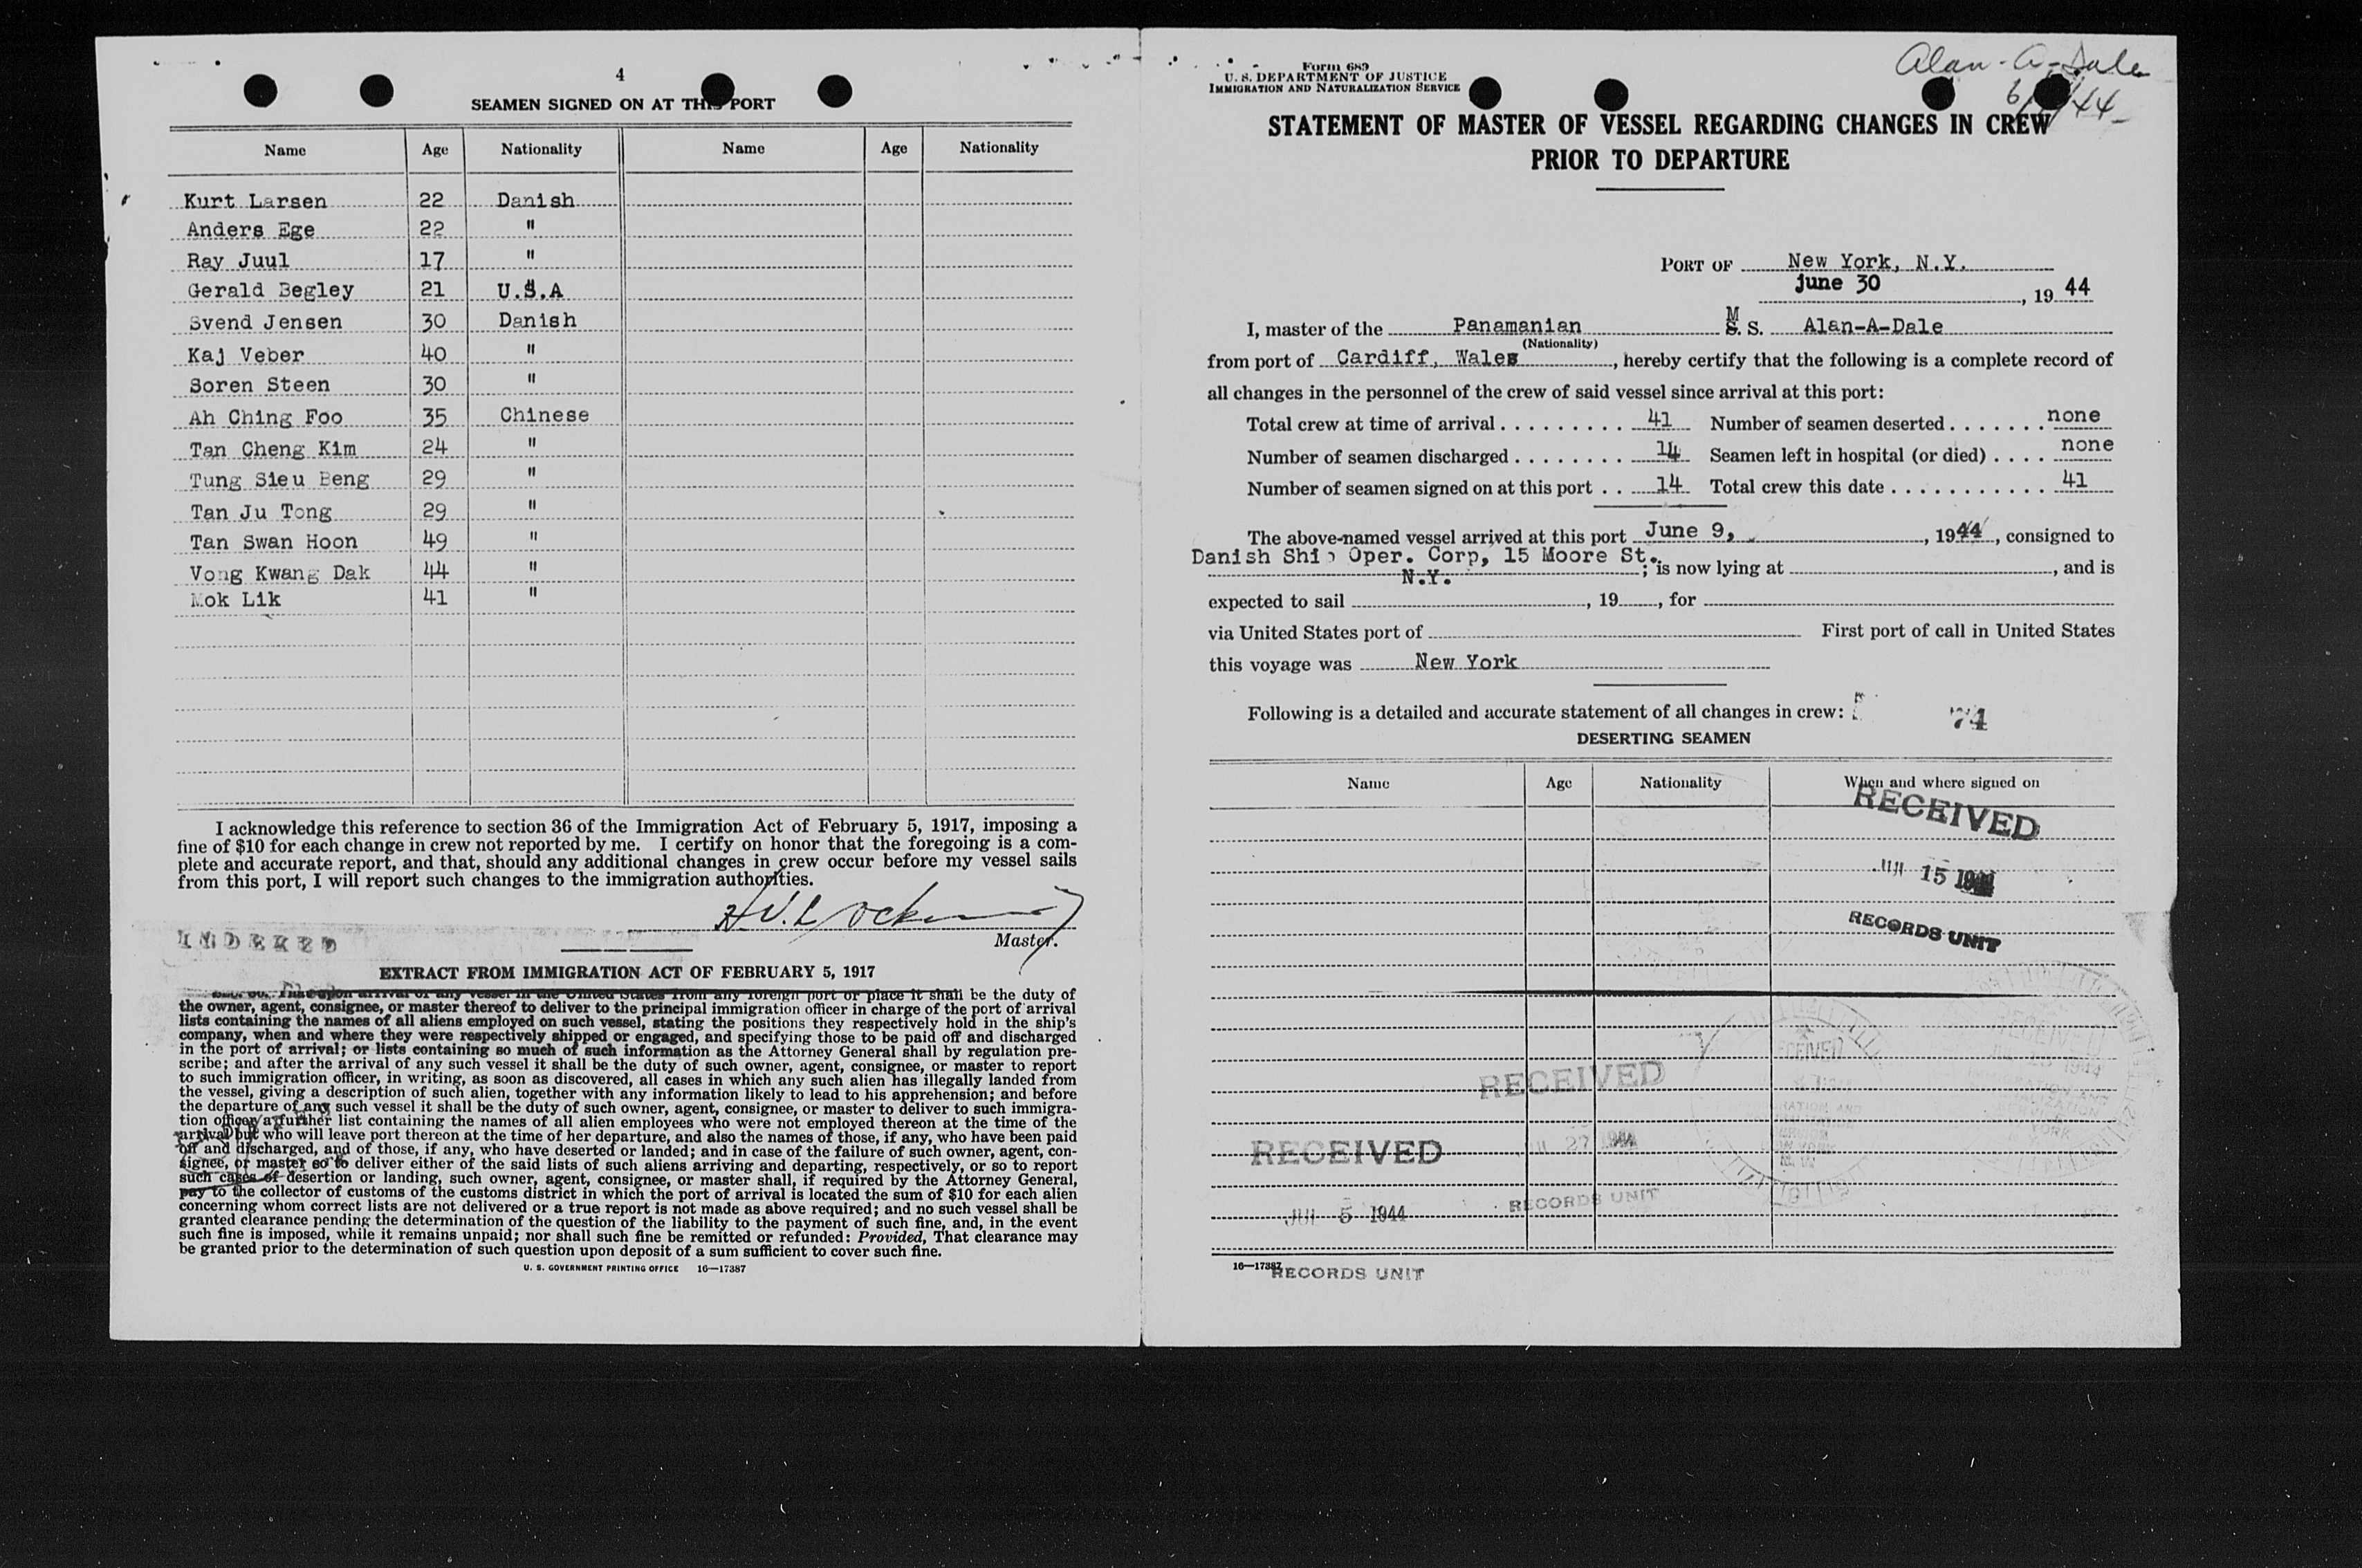 4
SEAMEN SIGNED ON AT THIS PORT
Name Age Nationality Name Age Nationality
Kurt Larsen 22 Danish
Anders Ege 22 "
Ray Juul 17 "
Gerald Begley 21 U.S.A
Svend Jensen 30 Danish
Kaj Veber 40 "
Soren Steen 30 "
Ah Ching Foo 35 Chinese
Tan Cheng Kim 24 "
Tung Sieu Beng 29 "
Tan Ju Tong 29 "
Tan Swan Hoon 49 "
Vong Kwang Dak 44 "
Mok Lik 41 "
I acknowledge this reference to section 36 of the Immigration Act of February 5, 1917, imposing a
fine of $10 for each change in crew not reported by me. I certify on honor that the foregoing is a com-
plete and accurate report, and that, should any additional changes in crew occur before my vessel sails
from this port, I will report such changes to the immigration authorities.
Master.
INDEXED
EXTRACT FROM IMMIGRATION ACT OF FEBRUARY 5, 1917
upon arrival of any vessel in the United States from any foreign port or place it shall be the duty of
the owner, agent, consignee, or master thereof to deliver to the principal immigration officer in charge of the port of arrival
lists containing the names of all aliens employed on such vessel, stating the positions they respectively hold in the ship's
company, when and where they were respectively shipped or engaged, and specifying those to be paid off and discharged
in the port of arrival; or lists containing so much of such information as the Attorney General shall by regulation pre-
scribe; and after the arrival of any such vessel it shall be the duty of such owner, agent, consignee, or master to report
to such immigration officer, in writing, as soon as discovered, all cases in which any such alien has illegally landed from
the vessel, giving a description of such alien, together with any information likely to lead to his apprehension; and before
the departure of any such vessel it shall be the duty of such owner, agent, consignee, or master to deliver to such immigra-
tion officer a further list containing the names of all alien employees who were not employed thereon at the time of the
arrival but who will leave port thereon at the time of her departure, and also the names of those, if any, who have been paid
off and discharged, and of those, if any, who have deserted or landed; and in case of the failure of such owner, agent, con-
signee, or master so to deliver either of the said lists of such aliens arriving and departing, respectively, or so to report
such cases of desertion or landing, such owner, agent, consignee, or master shall, if required by the Attorney General,
pay to the collector of customs of the customs district in which the port of arrival is located the sum of $10 for each alien
concerning whom correct lists are not delivered or a true report is not made as above required; and no such vessel shall be
granted clearance pending the determination of the question of the liability to the payment of such fine, and, in the event
such fine is imposed, while it remains unpaid; nor shall such fine be remitted or refunded: Provided, That clearance may
be granted prior to the determination of such question upon deposit of a sum sufficient to cover such fine.
U. S. GOVERNMENT PRINTING OFFICE 16—17387
Form 689
U. S. DEPARTMENT OF JUSTICE
IMMIGRATION AND NATURALIZATION SERVICE
Alan-A-Dale
STATEMENT OF MASTER OF VESSEL REGARDING CHANGES IN CREW
PRIOR TO DEPARTURE
PORT OF New York, N.Y.
june 30, 1944
I, master of the Panamanian M S. S. Alan-A-Dale
(Nationality)
from port of Cardiff, Wales, hereby certify that the following is a complete record of
all changes in the personnel of the crew of said vessel since arrival at this port:
Total crew at time of arrival 41 Number of seamen deserted none
Number of seamen discharged 14 Seamen left in hospital (or died) none
Number of seamen signed on at this port 14 Total crew this date 41
The above-named vessel arrived at this port June 9, 1944, consigned to
Danish Ship Oper. Corp, 15 Moore St. N.Y.; is now lying at , and is
expected to sail , 19 , for
via United States port of First port of call in United States
this voyage was New York
Following is a detailed and accurate statement of all changes in crew:
74
DESERTING SEAMEN
Name Age Nationality When and where signed on
RECEIVED
15 1944
RECORDS UNIT
RECEIVED
27 1944
RECORDS UNIT
RECEIVED
JUL 5 1944
RECORDS UNIT
16—17387